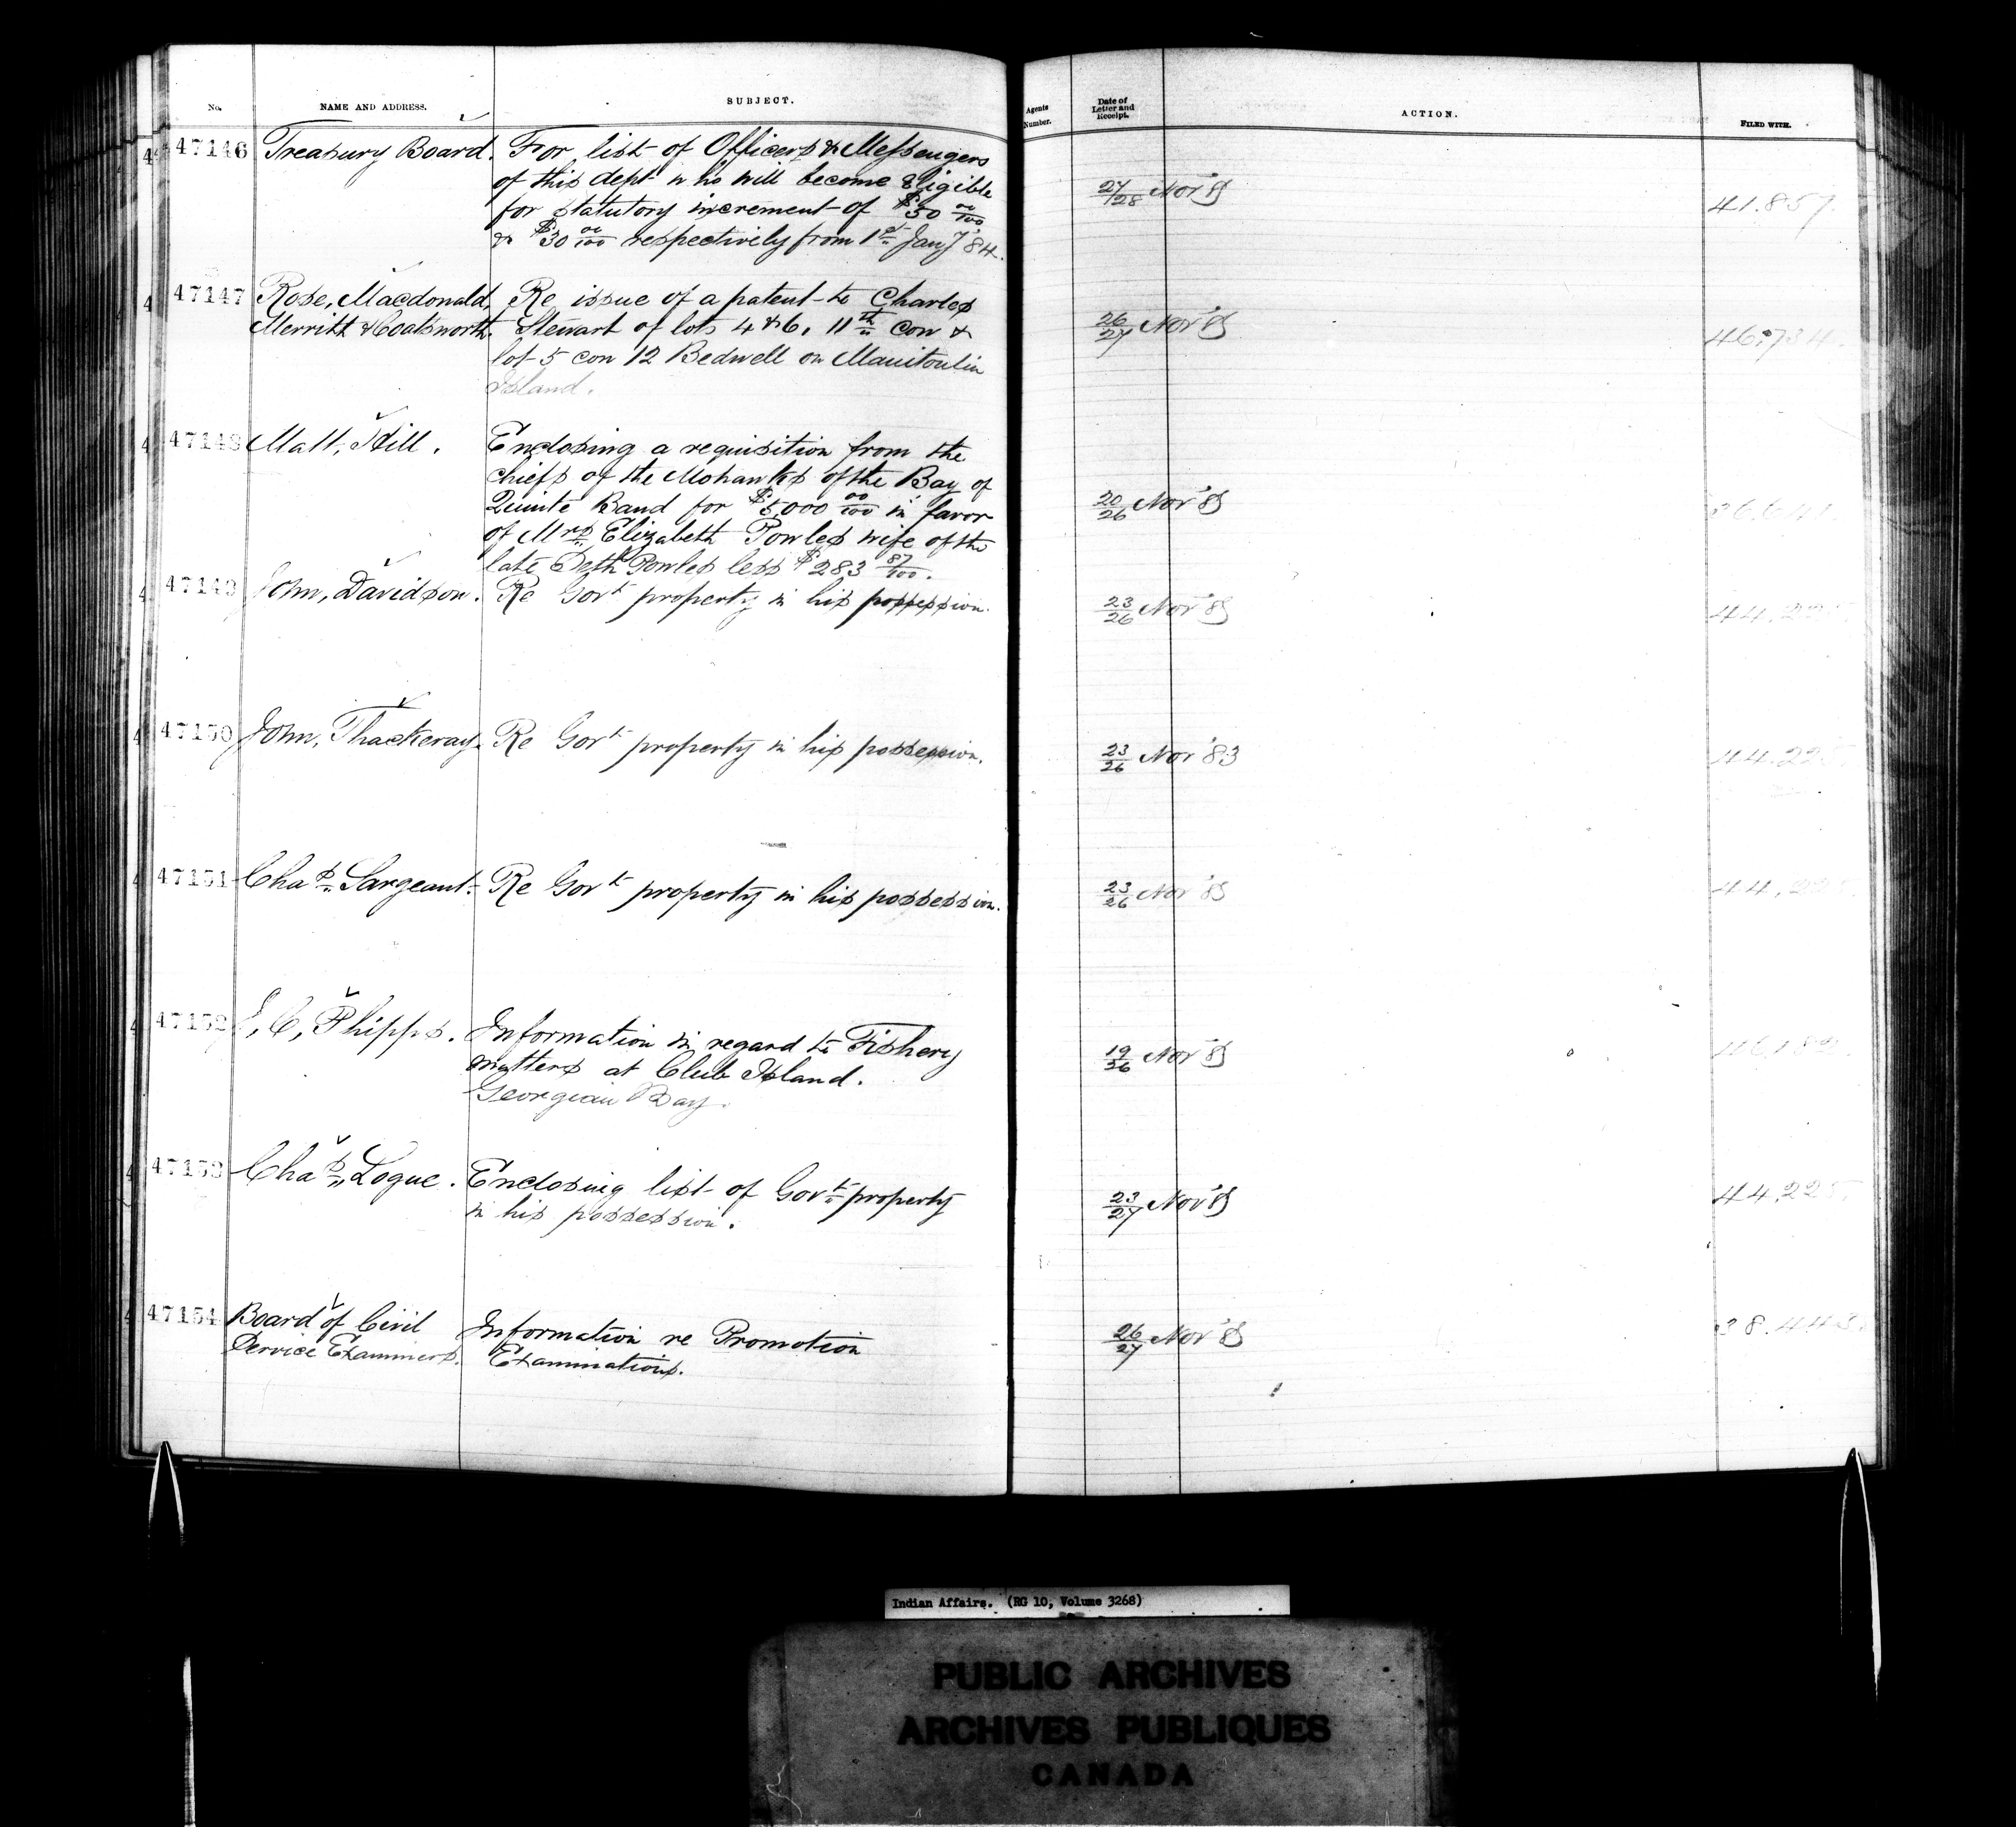 No. NAME AND ADDRESS. SUBJECT. Agents Number. Date of Letter and Receipt. ACTION. FILED WITH.
47146 Treasury Board. For list of Officers & Messengers
of this dept who will become Eligible
for statutory increment of $50 00/100
& $30 00/100 respectively from 1st Jany '84.
27/28 Nov '83 41.857.
47147 Rose, Macdonald, Re issue of a patent to Charles
Merritt & Coatsworth. Stewart of lots 4 & 6, 11th con &
lot 5 con 12 Bedwell on Manitoulin
Island.
26/27 Nov '83 46.734.
47148 Matt, Hill. Enclosing a requisition from the
chiefs of the Mohawks of the Bay of
Quinte Band for $5,000 00/100 in favor
of Mrs Elizabeth Powles wife of the
late Seth Powles less $283 87/100.
20/26 Nov '83
47149 John, Davidson. Re Govt property in his possession.
23/26 Nov '83
47150 John, Thackeray. Re Govt property in his possession.
23/26 Nov '83 44.225
47151 Chas. Sargeant. Re Govt property in his possession.
23/26 Nov '83 44,225
47152 J, C, Phipps. Information in regard to Fishery
matters at Club Island.
Georgian Bay.
19/26 Nov '83
47153 Chas. Logue. Enclosing list of Govt property
in his possession.
23/27 Nov '83 44,225.
47154 Board of Civil Information re Promotion
Service Examiners. Examinations.
26/27 Nov '83 38.443.
Indian Affairs. (RG 10, Volume 3268)
PUBLIC ARCHIVES
ARCHIVES PUBLIQUES
CANADA